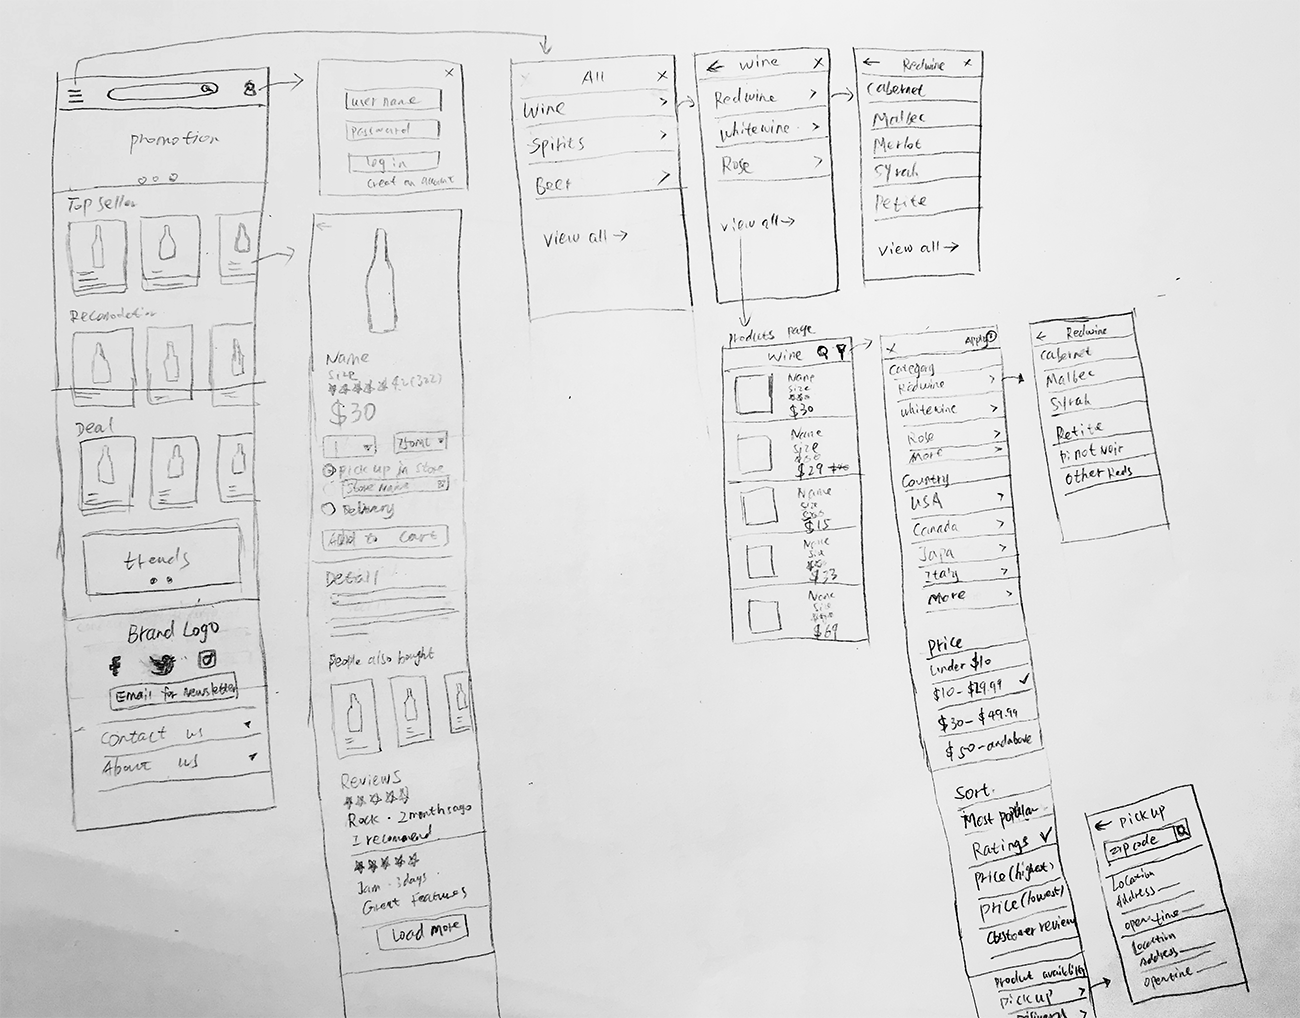 promotion
Top Seller
Deal
trends
Brand Logo
Email for Newsletter
Contact us
About us
×
user name
password
log in
creat an account
←
Name
size
4.2 (322)
$30
1
750ml
pick up in store
Store name
Delivery
Add to cart
Detail
People also bought
Reviews
Rock · 2 months ago
I recommend
Jam · 3 days ·
Great Features
Load more
All ×
Wine >
Spirits >
Beer >
View all →
← Wine ×
Redwine >
Whitewine >
Rose >
view all →
← Redwine ×
Cabernet
Malbec
Merlot
Syrah
Petite
View all →
products page
Wine
Name
size
$30
Name
size
$29
Name
size
$15
Name
size
$33
Name
size
$69
×
Apply
Category
Redwine >
Whitewine >
Rose >
More >
Country
USA >
Canada >
Japa >
Italy >
More >
Price
Under $10
$10 - $29.99 ✓
$30 - $49.99
$50 - and above
Sort.
Most popular
Ratings ✓
Price (highest)
Price (lowest)
Customer review
Product availility
Pick up >
← Redwine
Cabernet
Malbec
Syrah
Petite
Pinot Noir
Other Reds
← Pick up
Zip code
Location
Address
open time
Location
Address
open time